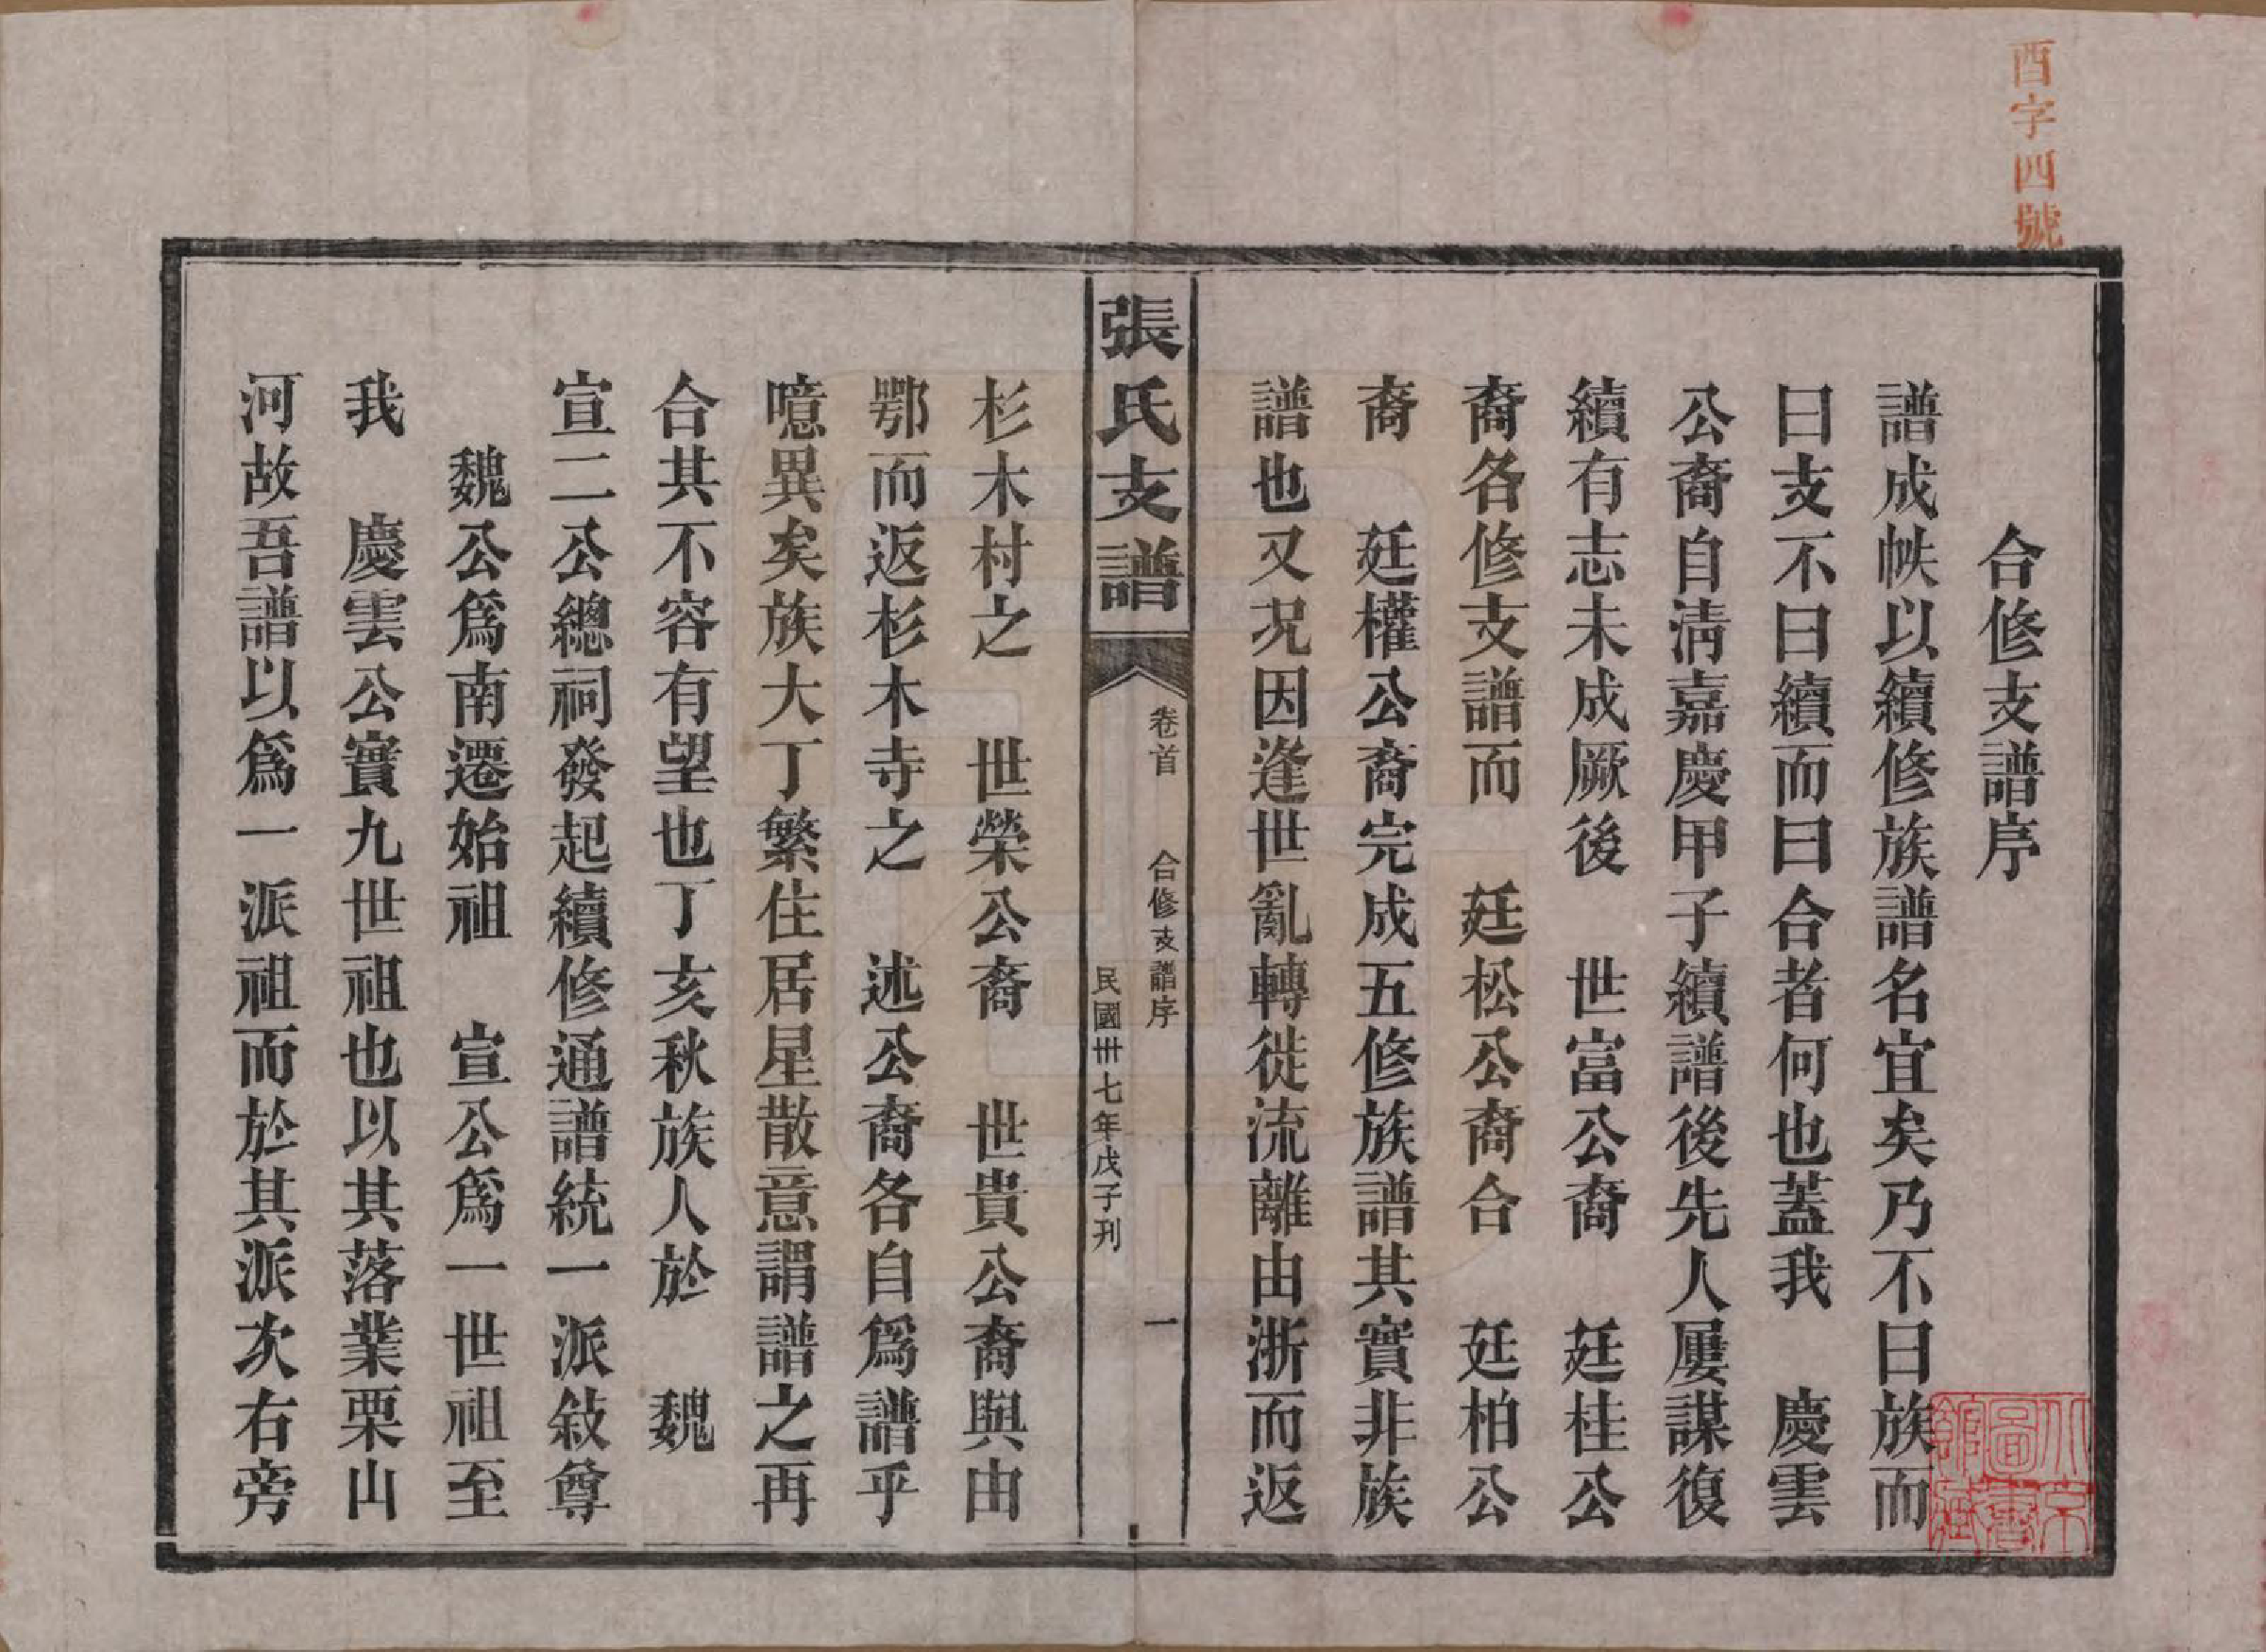 酉字四號
合修支譜序
譜成帙以續修族譜名宜矣乃不曰族而
曰支不曰續而曰合者何也蓋我　慶雲
公裔自淸嘉慶甲子續譜後先人屢謀復
續有志未成厥後　世富公裔　廷桂公
裔各修支譜而　廷松公裔合　廷柏公
裔　廷權公裔完成五修族譜其實非族
譜也又况因逢世亂轉徙流離由浙而返
張氏支譜
卷首　合修支譜序　一
民國卅七年戊子刊
杉木村之　世榮公裔　世貴公裔與由
鄂而返杉木寺之　述公裔各自爲譜乎
噫異矣族大丁繁住居星散意謂譜之再
合其不容有望也丁亥秋族人於　魏
宣二公總祠發起續修通譜統一派敍尊
魏公爲南遷始祖　宣公爲一世祖至
我　慶雲公實九世祖也以其落業栗山
河故吾譜以爲一派祖而於其派次右旁
北京圖書館藏